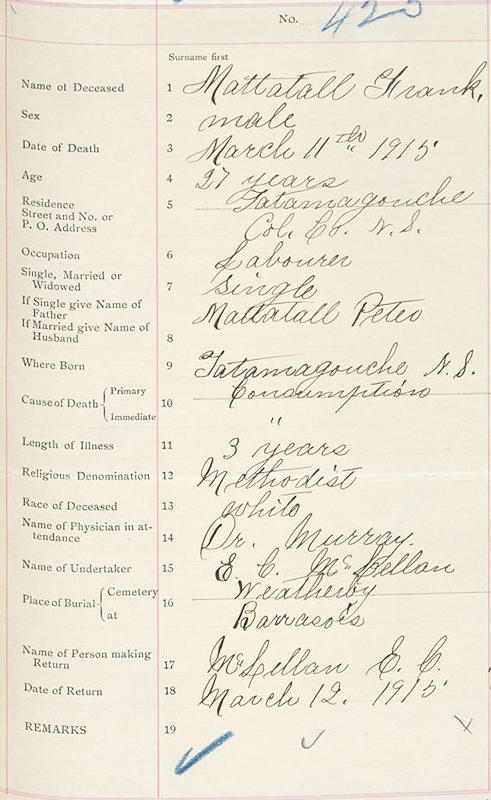 No. 423
Surname first
Name of Deceased 1 Mattatall Frank,
Sex 2 male
Date of Death 3 March 11th 1915
Age 4 27 years
Residence 5 Tatamagouche
Street and No. or
P. O. Address Col. Co. N.S.
Occupation 6 Labourer
Single, Married or
Widowed 7 Single
If Single give Name of
Father Mattatall Peter
If Married give Name of
Husband 8
Where Born 9 Tatamagouche N.S.
Cause of Death { Primary Consumption
10
Immediate "
Length of Illness 11 3 years
Religious Denomination 12 Methodist
Race of Deceased 13 white
Name of Physician in at-
tendance 14 Dr. Murray.
Name of Undertaker 15 E. C. McLellan
Place of Burial { Cemetery Weatherby
16
at Barrasois
Name of Person making
Return 17 McLellan E. C.
Date of Return 18 March 12. 1915
REMARKS 19